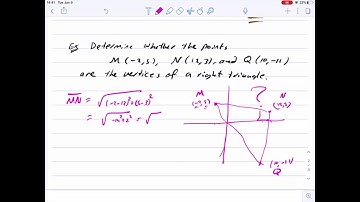 Ex Determine whether the points
M (-2,5), N (12,3), and Q (10,-11)
are the vertices of a right triangle.
MN = √(-2-12)²+(5-3)²
= √-14²+2² = √
M
(-2,5)
?
N
(12,3)
(10,-11)
Q